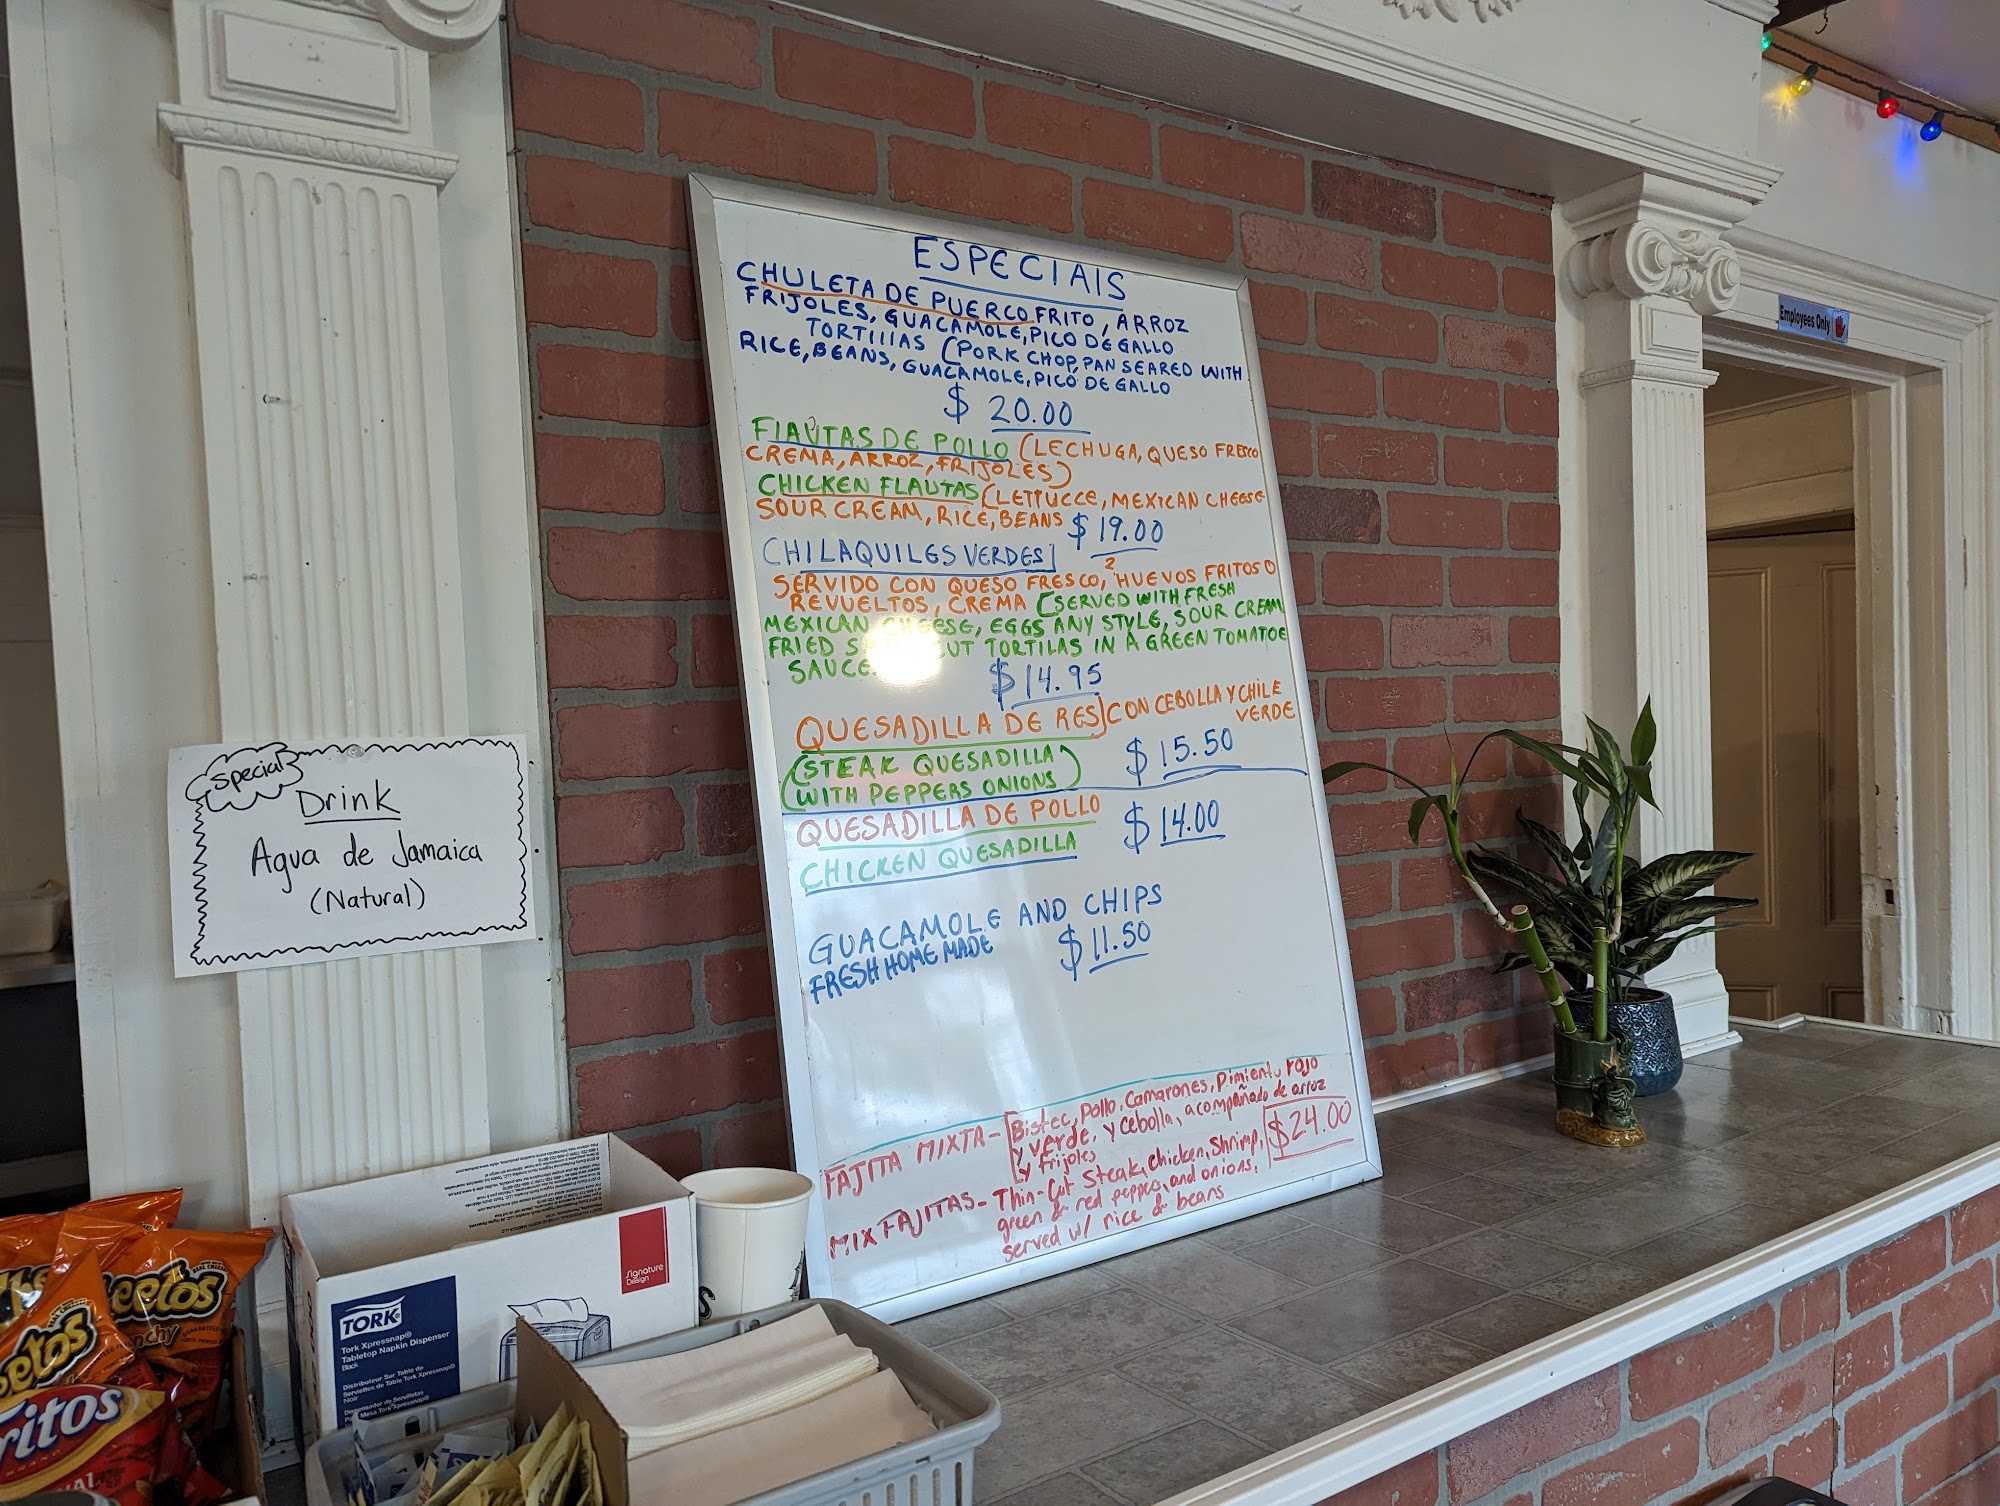 ESPECIAlS
CHULETA DE PUERCO FRITO, ARROZ
FRIJOLES, GUACAMOLE, PICO DE GALLO
TORTIllAS (PORK CHOP, PAN SEARED WITH
RICE, BEANS, GUACAMOLE, PICO DE GALLO
$ 20.00
FlAUTAS DE POLLO (LECHUGA, QUESO FRESCO
CREMA, ARROZ, FRIJOLES)
CHICKEN FLAUTAS (LETTUCCE, MEXICAN CHEESE
SOUR CREAM, RICE, BEANS $ 19.00
CHILAQUILES VERDES]
SERVIDO CON QUESO FRESCO, 2 HUEVOS FRITOS O
REVUELTOS, CREMA (SERVED WITH FRESH
MEXICAN CHEESE, EGGS ANY STYLE, SOUR CREAM
FRIED CUT TORTILAS IN A GREEN TOMATOE
SAUCE
$ 14.95
QUESADILLA DE RES] CON CEBOLLA Y CHILE
VERDE
(STEAK QUESADILLA
WITH PEPPERS ONIONS) $ 15.50
QUESADILLA DE POLLO $ 14.00
CHICKEN QUESADILLA
GUACAMOLE AND CHIPS
FRESH HOME MADE $ 11.50
FAJITA MIXTA - [Bistec, pollo, camarones, pimiento rojo
y verde, y cebolla, acompañado de arroz
y frijoles $24.00
MIX FAJITAS - Thin-Cut Steak, chicken, shrimp,
green & red pepper, and onions,
served w/ rice & beans
Special
Drink
Agua de Jamaica
(Natural)
Employees Only
TORK
Tork Xpressnap®
Tabletop Napkin Dispenser
Black
Distributeur Sur Table de
Serviettes de Table Tork Xpressnap®
Noir
Dispensador de Servilletas
de Mesa Tork Xpressnap®
Signature
Design
eetos
nchy
eetos
ritos